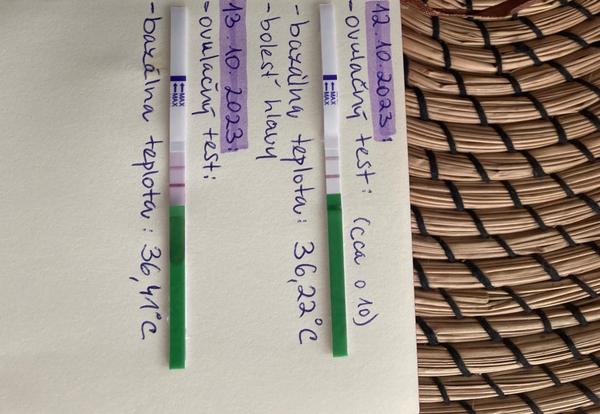 12.10.2023:
- ovulačný test: (cca o 10)
- bazálna teplota: 36,22°C
- bolesť hlavy
13.10.2023:
- ovulačný test:
- bazálna teplota: 36,41°C
MAX
MAX
MAX
MAX